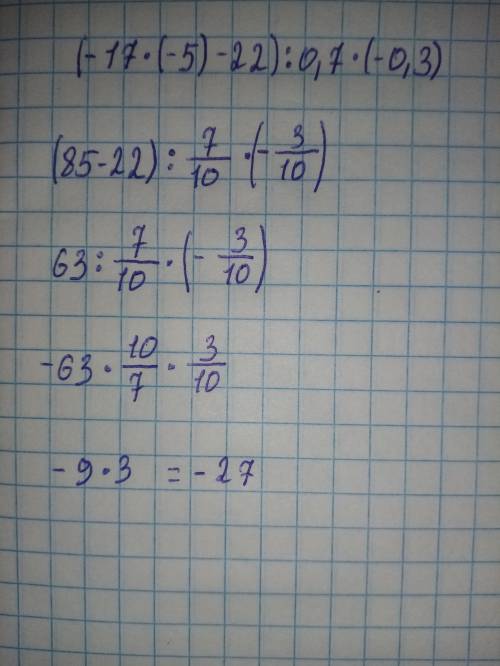 (-17·(-5)-22):0,7·(-0,3)
(85-22):7/10·(-3/10)
63:7/10·(-3/10)
-63·10/7·3/10
-9·3 =-27